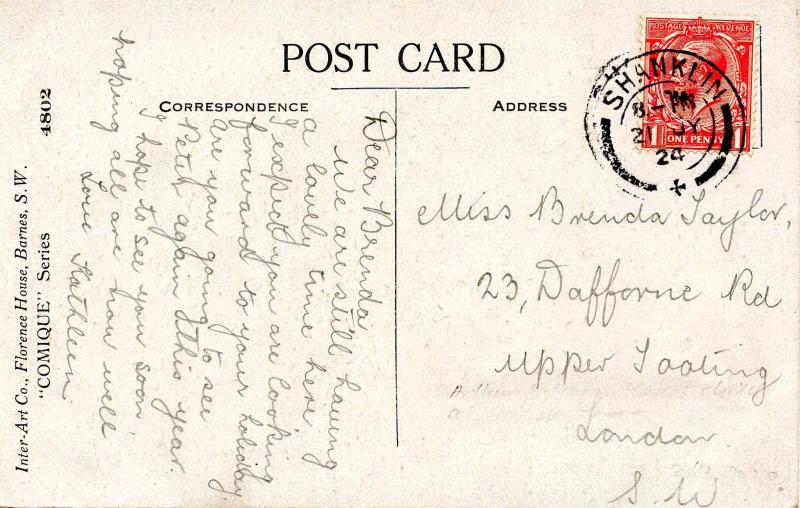 POST CARD
CORRESPONDENCE
ADDRESS
Dear Brenda
We are still having
a lovely time here
I expect you are looking
forward to your holiday
are you going to see
Peter again this year.
I hope to see you soon
hoping all are now well
Love Kathleen
Miss Brenda Taylor,
23, Dafforne Rd
Upper Tooting
London
S.W
POSTAGE REVENUE
ONE PENNY
SHANKLIN
21 JY
24
Inter-Art Co., Florence House, Barnes, S.W.
"COMIQUE" Series 4802